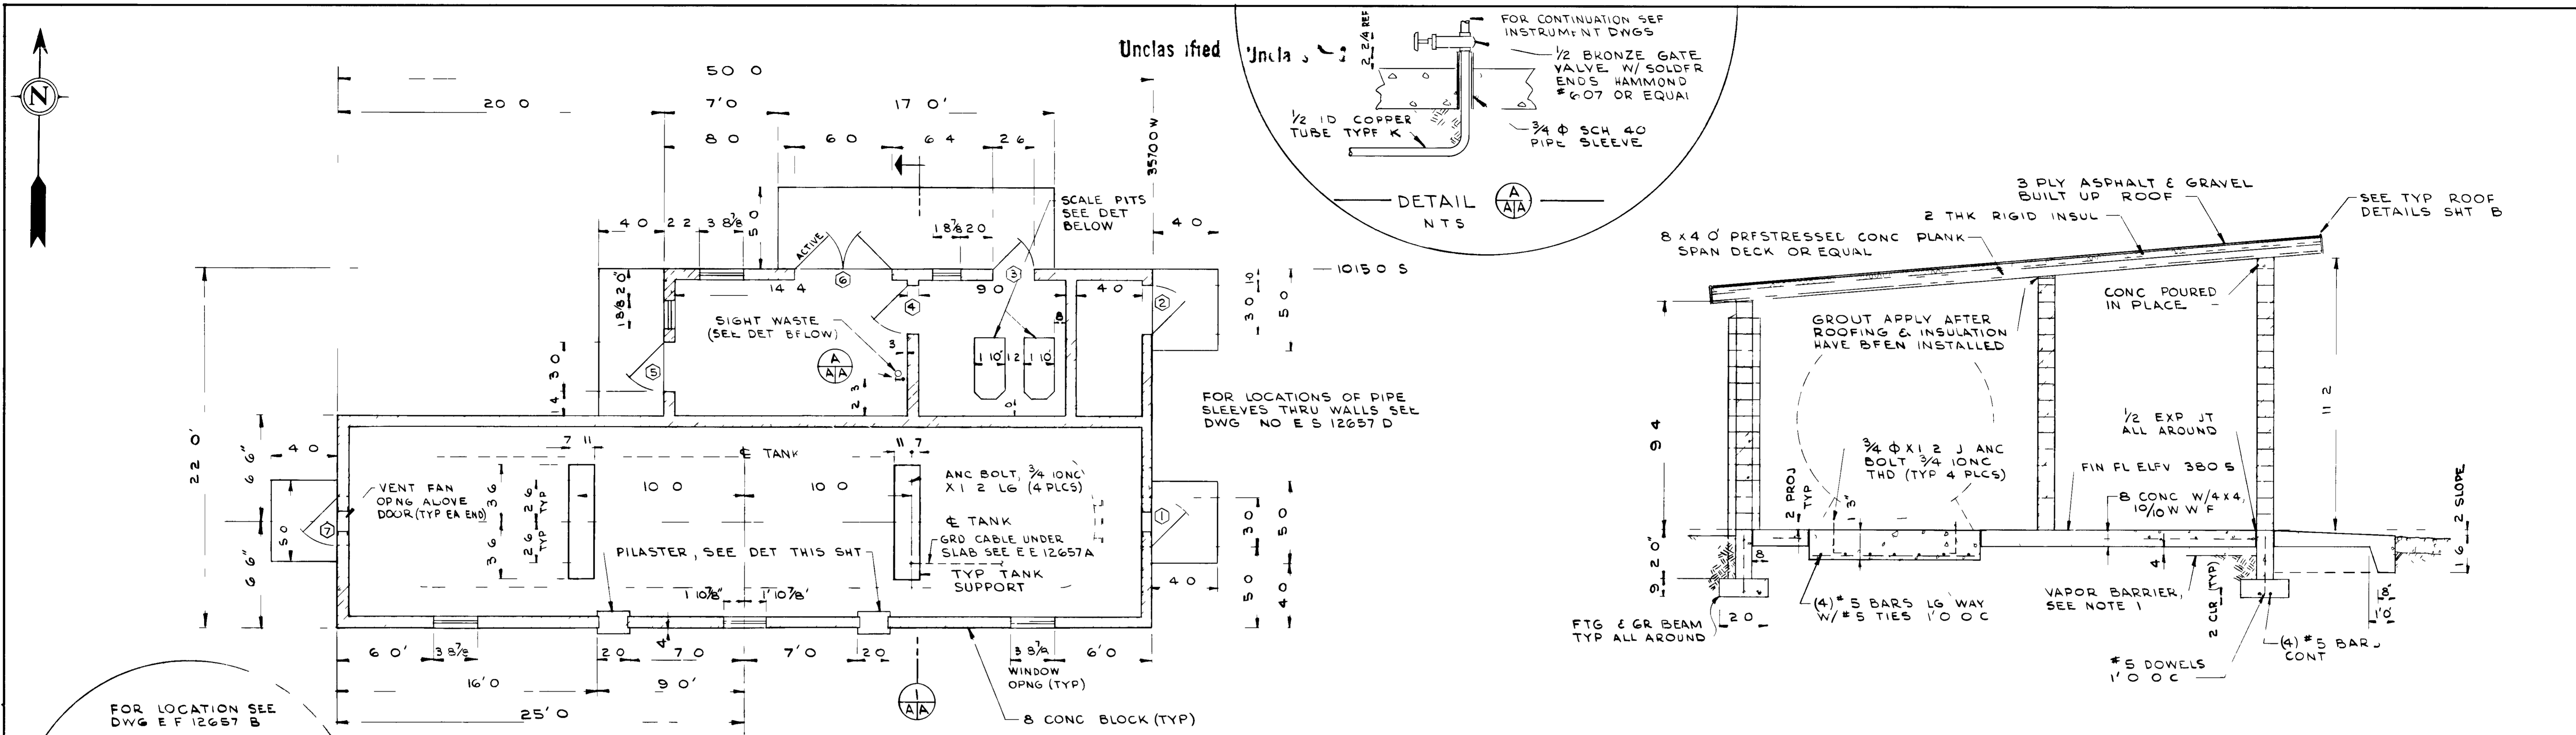 N
Unclas ified
50 0
20 0
7'0
17 0'
8 0
6 0
6 4
2 6
3570 0 W
4 0
2 2
3 8⅞
5 0
ACTIVE
1 8⅞
2 0
SCALE PITS
SEE DET
BELOW
4 0
10150 S
6
3
14 4
4
9 0
4 0
2
8
3 0
1 0
5 0
2 0"
SIGHT WASTE
(SEE DET BELOW)
A
A|A
3
1 10'
1 2
1 10'
5
3 0
1 4
2 3
FOR LOCATIONS OF PIPE
SLEEVES THRU WALLS SEE
DWG NO E S 12657 D
22 0'
6 6"
6 6"
4 0
5 0
7
VENT FAN
OPNG ABOVE
DOOR (TYP EA END)
7 11
℄ TANK
11 7
3 6
3 6
2 6
TYP
2 6
TYP
10 0
10 0
ANC BOLT, ¾ 10NC
X 1 2 LG (4 PLCS)
℄ TANK
GRD CABLE UNDER
SLAB SEE E E 12657 A
TYP TANK
SUPPORT
PILASTER, SEE DET THIS SHT
1 10⅞"
1' 10⅞'
1
3 0
5 0
5 0
4 0
4 0
4
6 0'
3 8⅞
2 0
7 0
7'0
2 0
3 8⅞
6'0
WINDOW
OPNG (TYP)
16'0
9 0'
25' 0
1
A|A
8 CONC BLOCK (TYP)
FOR LOCATION SEE
DWG E F 12657 B
2 2/4 REF
FOR CONTINUATION SEE
INSTRUMENT DWGS
½ BRONZE GATE
VALVE W/ SOLDER
ENDS HAMMOND
#607 OR EQUAL
½ ID COPPER
TUBE TYPE K
¾ Φ SCH 40
PIPE SLEEVE
DETAIL
A
A|A
NTS
3 PLY ASPHALT & GRAVEL
BUILT UP ROOF
SEE TYP ROOF
DETAILS SHT B
2 THK RIGID INSUL
8 X 4 0' PRESTRESSED CONC PLANK
SPAN DECK OR EQUAL
CONC POURED
IN PLACE
GROUT APPLY AFTER
ROOFING & INSULATION
HAVE BEEN INSTALLED
11 2
9 4
½ EXP JT
ALL AROUND
¾ Φ X 1 2 J ANC
BOLT ¾ 10NC
THD (TYP 4 PLCS)
FIN FL ELEV 380 5
8 CONC W/ 4 X 4,
10/10 W W F
2 PROJ
TYP
1 3"
2 SLOPE
1 6
2 0"
9
8
4
2 CLR (TYP)
VAPOR BARRIER,
SEE NOTE 1
(4) #5 BARS LG WAY
W/ #5 TIES 1'0 O C
FTG & GR BEAM
TYP ALL AROUND
2 0
8"
1'0"
(4) #5 BAR
CONT
#5 DOWELS
1'0 O C